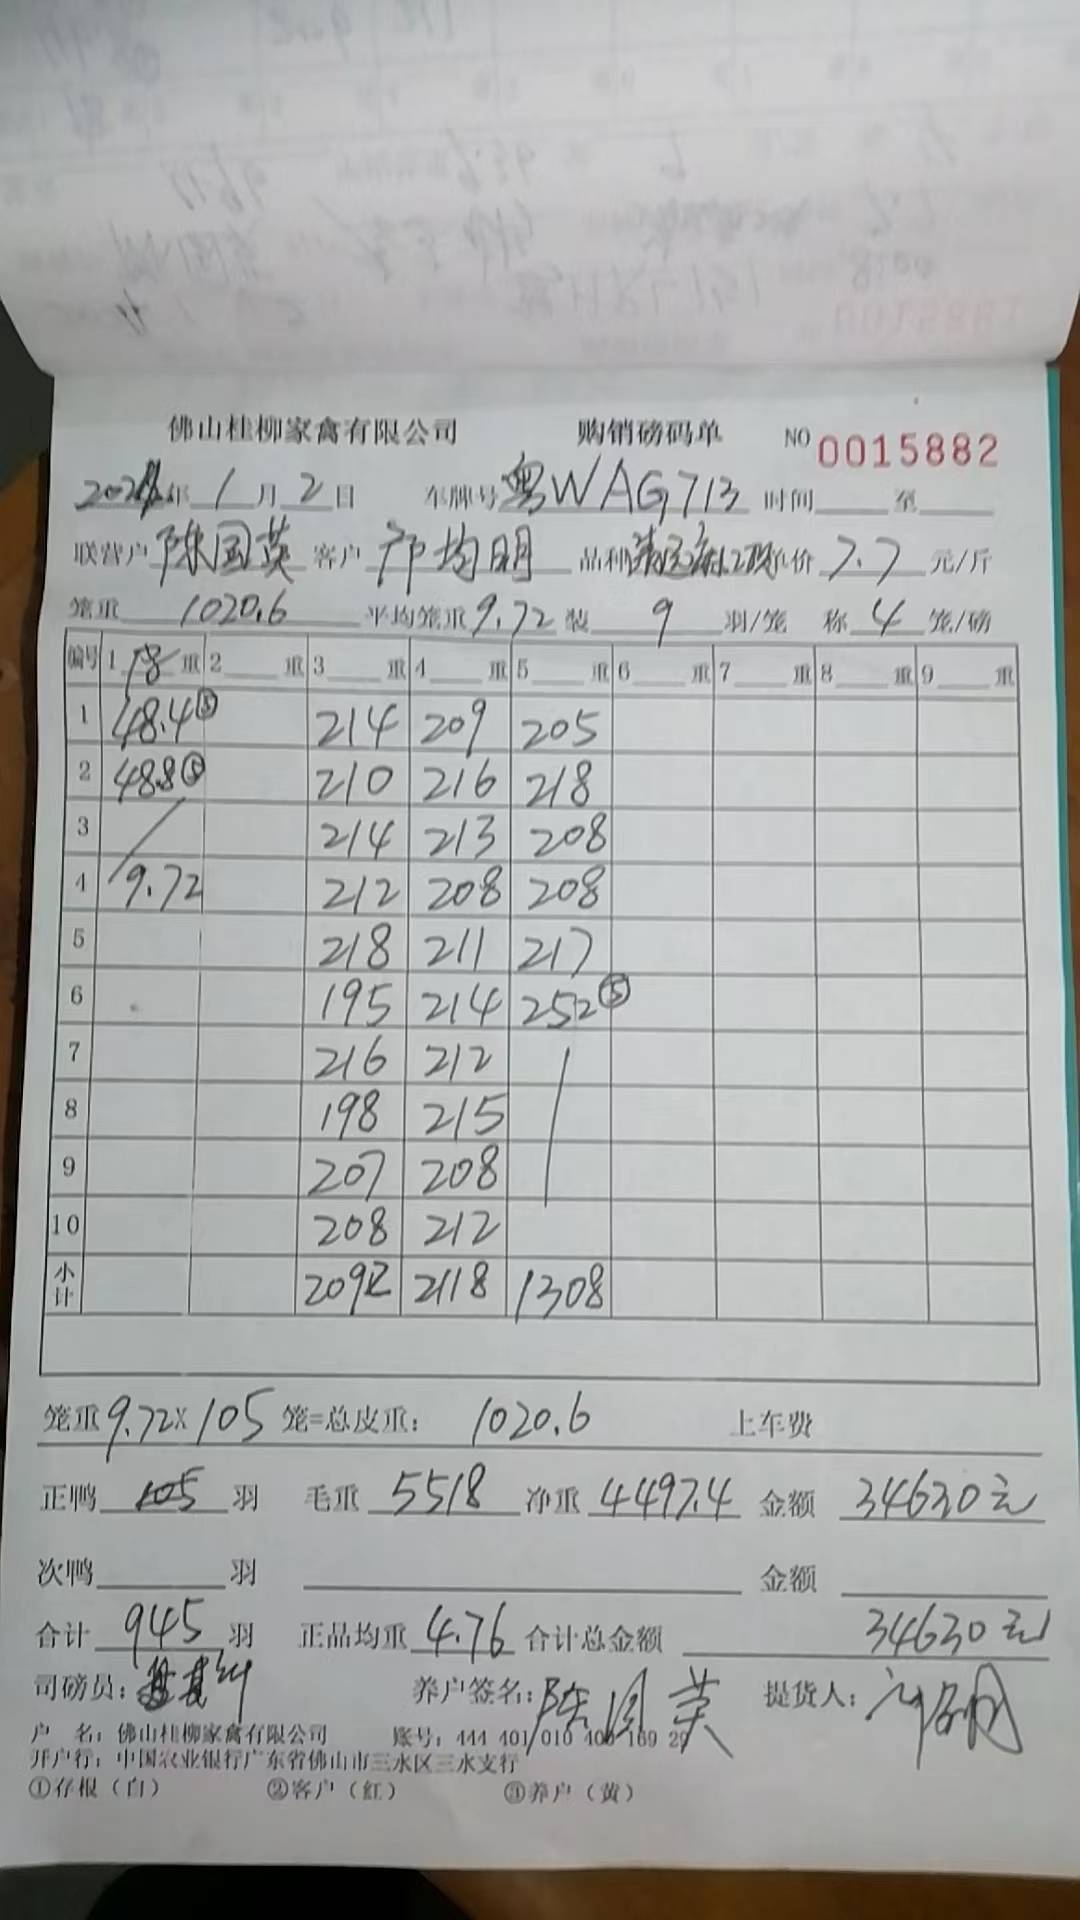 佛山桂柳家禽有限公司 购销磅码单 NO 0015882
年 1 月 2 日 车牌号 粤WAG713 时间 至
联营户 陈国英 客户 均明 品种 价 7.7 元/斤
笼重 1020.6 平均笼重 9.72 装 9 羽/笼 称 4 笼/磅
编号 1 重 2 重 3 重 4 重 5 重 6 重 7 重 8 重 9 重
1 48.4⑤ 214 209 205
2 48.8⑤ 210 216 218
3 214 213 208
4 9.72 212 208 208
5 218 211 217
6 195 214 252⑤
7 216 212
8 198 215
9 207 208
10 208 212
小计 2092 2118 1308
笼重 9.72× 105 笼=总皮重: 1020.6 上车费
正鸭 105 羽 毛重 5518 净重 4497.4 金额 34630元
次鸭 羽 金额
合计 945 羽 正品均重 4.76 合计总金额 34630元
司磅员: 养户签名: 陈国英 提货人:
户 名: 佛山桂柳家禽有限公司 账号: 444 401 010 400 169 29
开户行: 中国农业银行广东省佛山市三水区三水支行
①存根(白) ②客户(红) ③养户(黄)